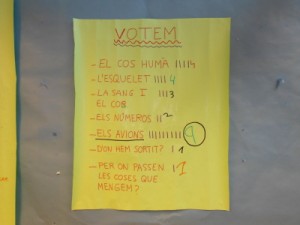 VOTEM
- EL COS HUMÀ IIII 4
- L'ESQUELET IIII 4
- LA SANG I III 3
EL COS
- ELS NÚMEROS II 2
- ELS AVIONS IIIIIIIII 9
- D'ON HEM SORTIT? I 1
- PER ON PASSEN I 1
LES COSES QUE
MENGEM?